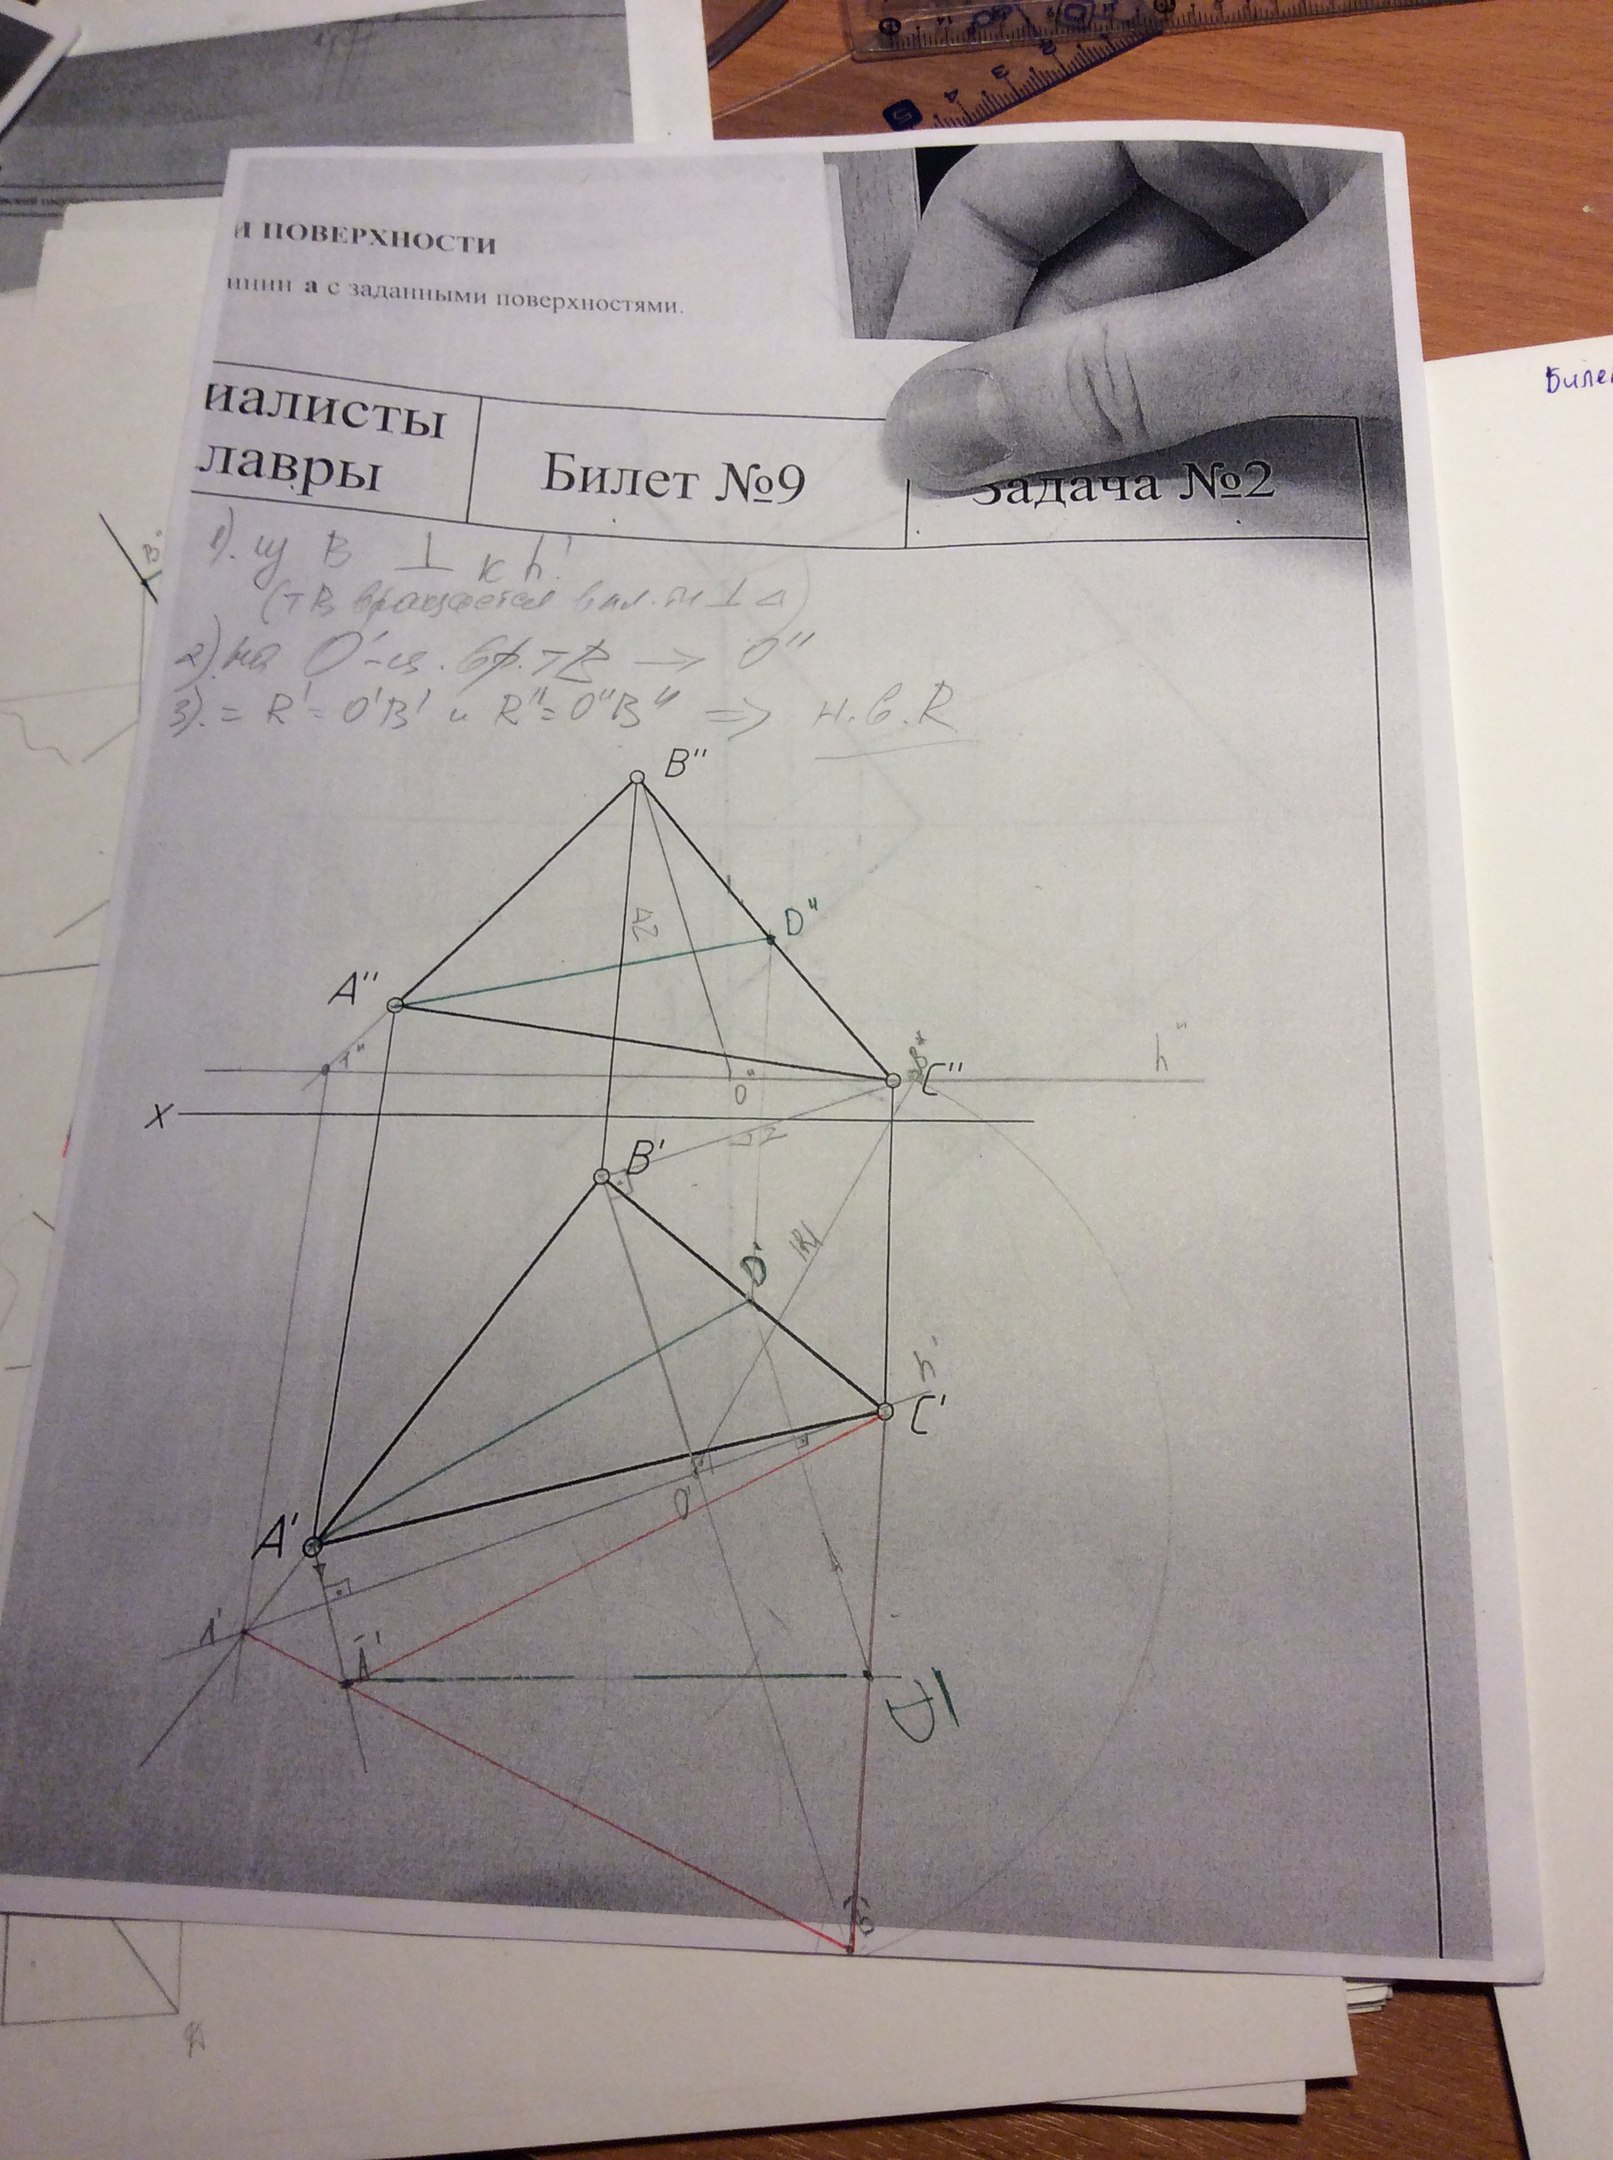 И ПОВЕРХНОСТИ
инии а с заданными поверхностями.
иалисты
лавры
Билет №9
Задача №2
1). из В ⊥ к h'
(т В вращается в пл.
2) на O'-ц. вр. т В → O"
3). = R' = O'B' и R" = O"B" => н.в. R
B"
ΔZ
D"
A"
1"
h"
O"
B*
C"
X
B'
ΔZ
D'
|R|
h'
C'
O'
A'
1'
Ā'
D̄
B̄
B"
Биле
5
4
3
2